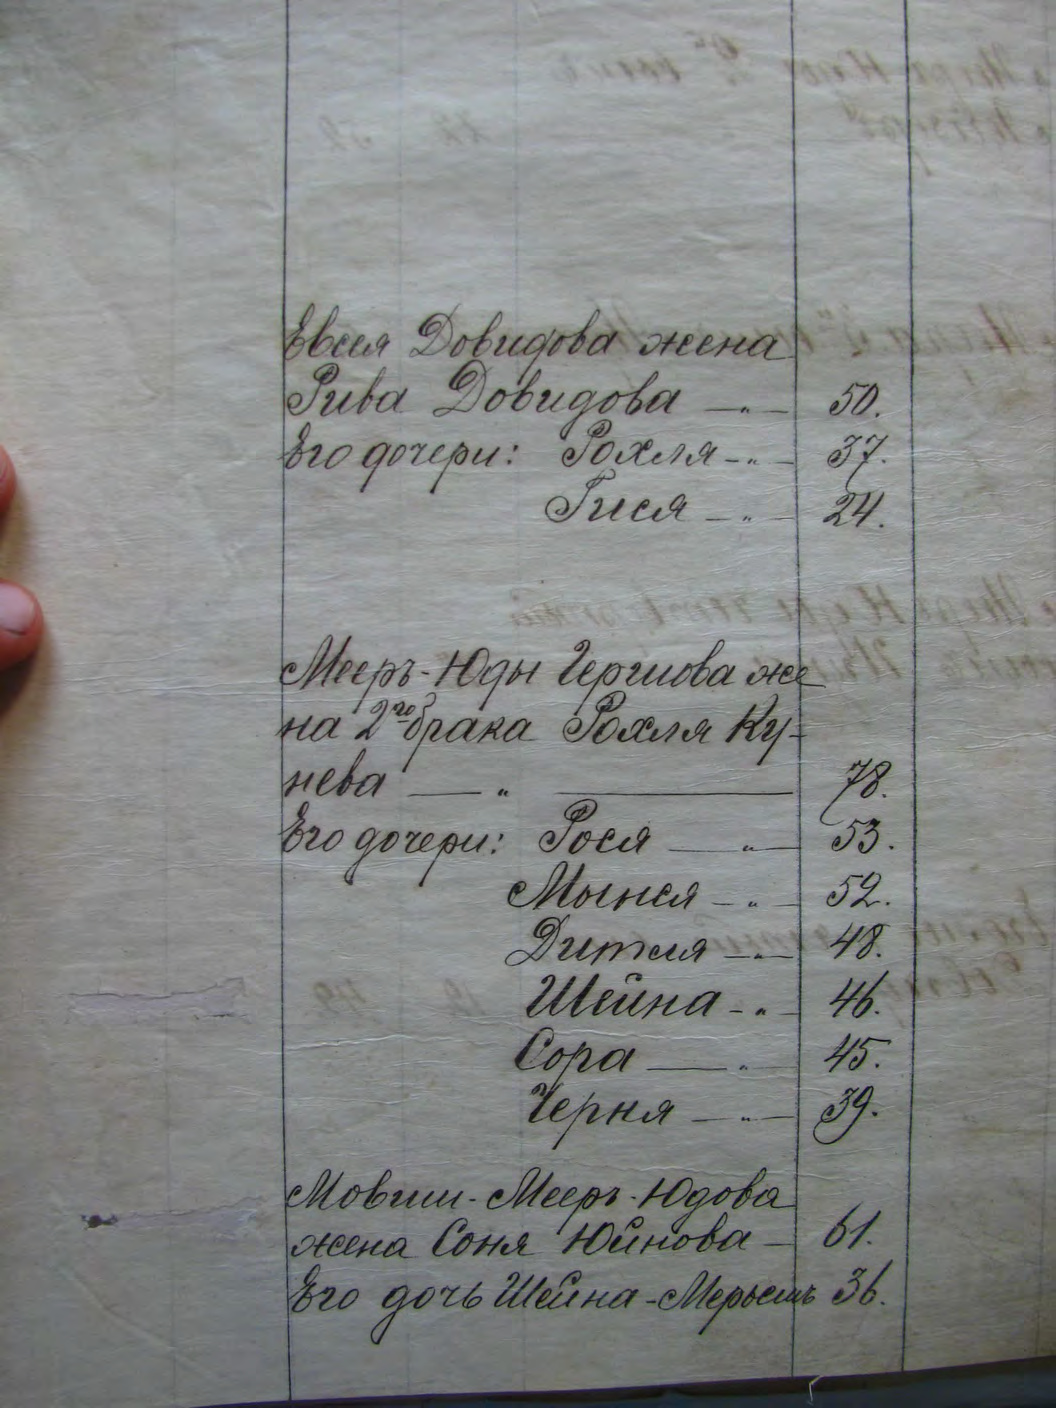 Евсея Довидова жена
Рива Довидова — „ — 50.
Его дочери: Рохля - „ - 37.
Гися - „ - 24.
Мееръ-Юды Гершова же
на 2го брака Рохля Ку-
нева — „ — 78.
Его дочери: Рося — „ - 53.
Мынся - „ - 52.
Дитля - „ - 48.
Шейна - „ - 46.
Сора — „ - 45.
Черня — „ - 39.
Мовши-Мееръ-Юдова
жена Соня Юйнова - 61.
Его дочь Шейна- 36.